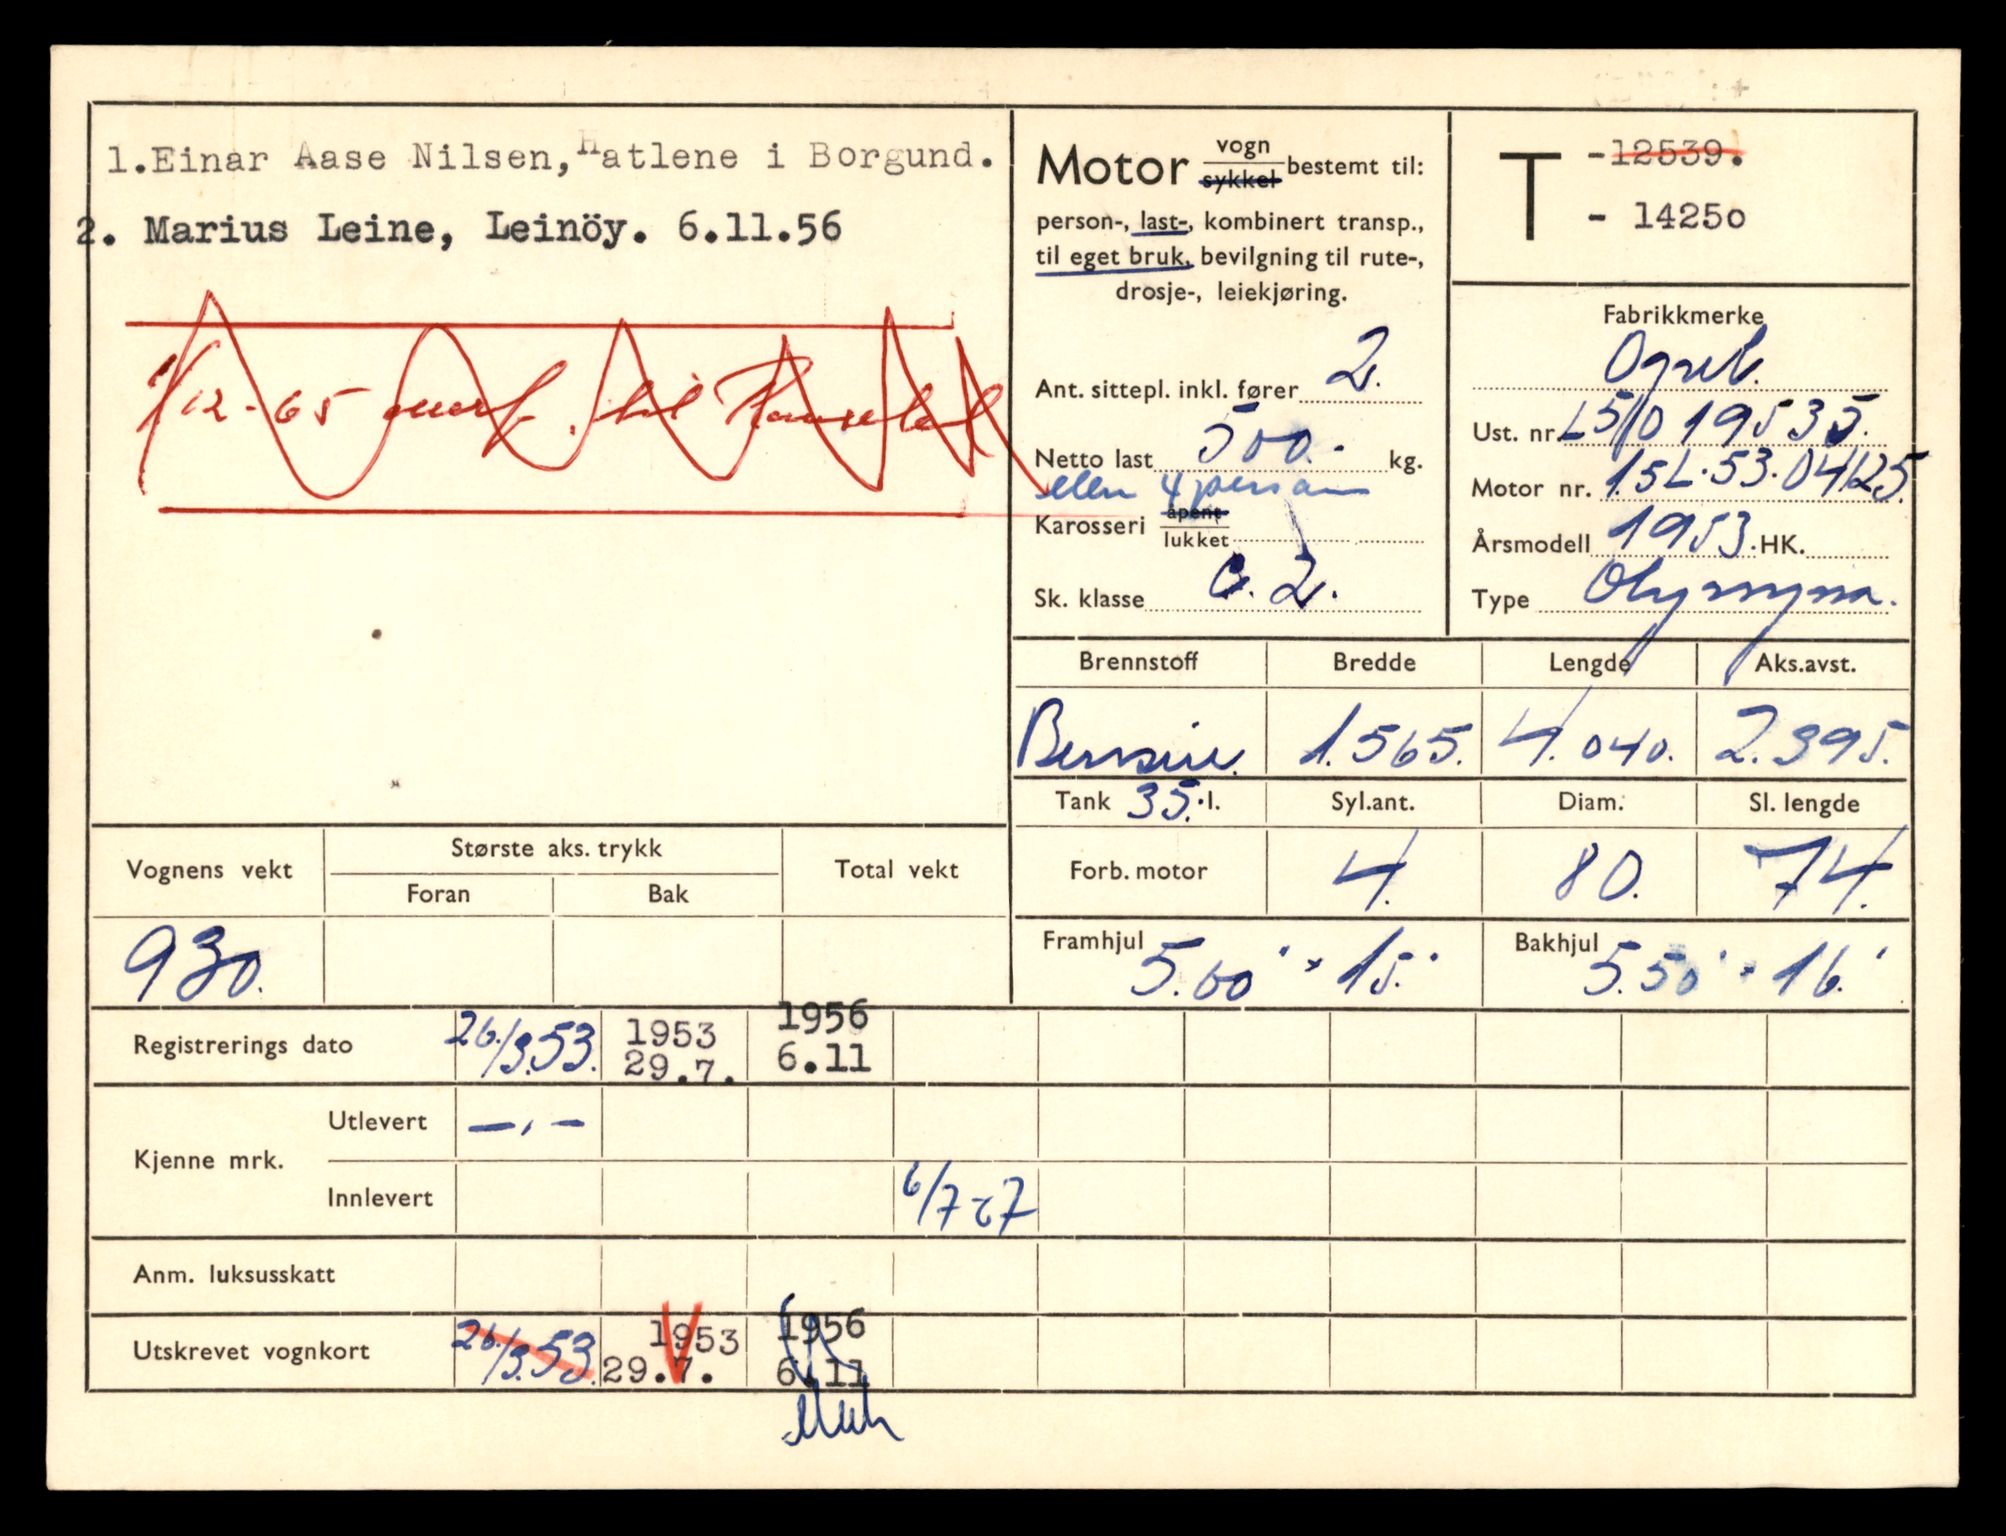 1.Einar Aase Nilsen, Hatlene i Borgund.
2. Marius Leine, Leinöy. 6.11.56
1/12-65 til
Motor vogn sykkel bestemt til:
person-, last-, kombinert transp.,
til eget bruk, bevilgning til rute-,
drosje-, leiekjøring.
Ant. sittepl. inkl. fører 2.
Netto last 500.- kg.
eller 4 person
Karosseri åpent lukket
Sk. klasse 2.
T -12539.
- 14250
Fabrikkmerke
Opel.
Ust. nr. L51/0 19535.
Motor nr. 1.5L.53.04125.
Årsmodell 1953. HK.
Type Olympia.
Brennstoff Bredde Lengde Aks.avst.
Bensin. 1.565. 4.040. 2.395.
Tank 35. l. Syl.ant. Diam. Sl. lengde
Forb. motor 4. 80. 74.
Framhjul 5.00" × 15." Bakhjul 5.50" × 16."
Vognens vekt Største aks. trykk Total vekt
Foran Bak
930.
Registrerings dato 26./3.53. 1953 29.7. 1956 6.11
Kjenne mrk. Utlevert —.—
Innlevert 6/7-67
Anm. luksusskatt
Utskrevet vognkort 26./3.53. 1953 29.7. 1956 6.11